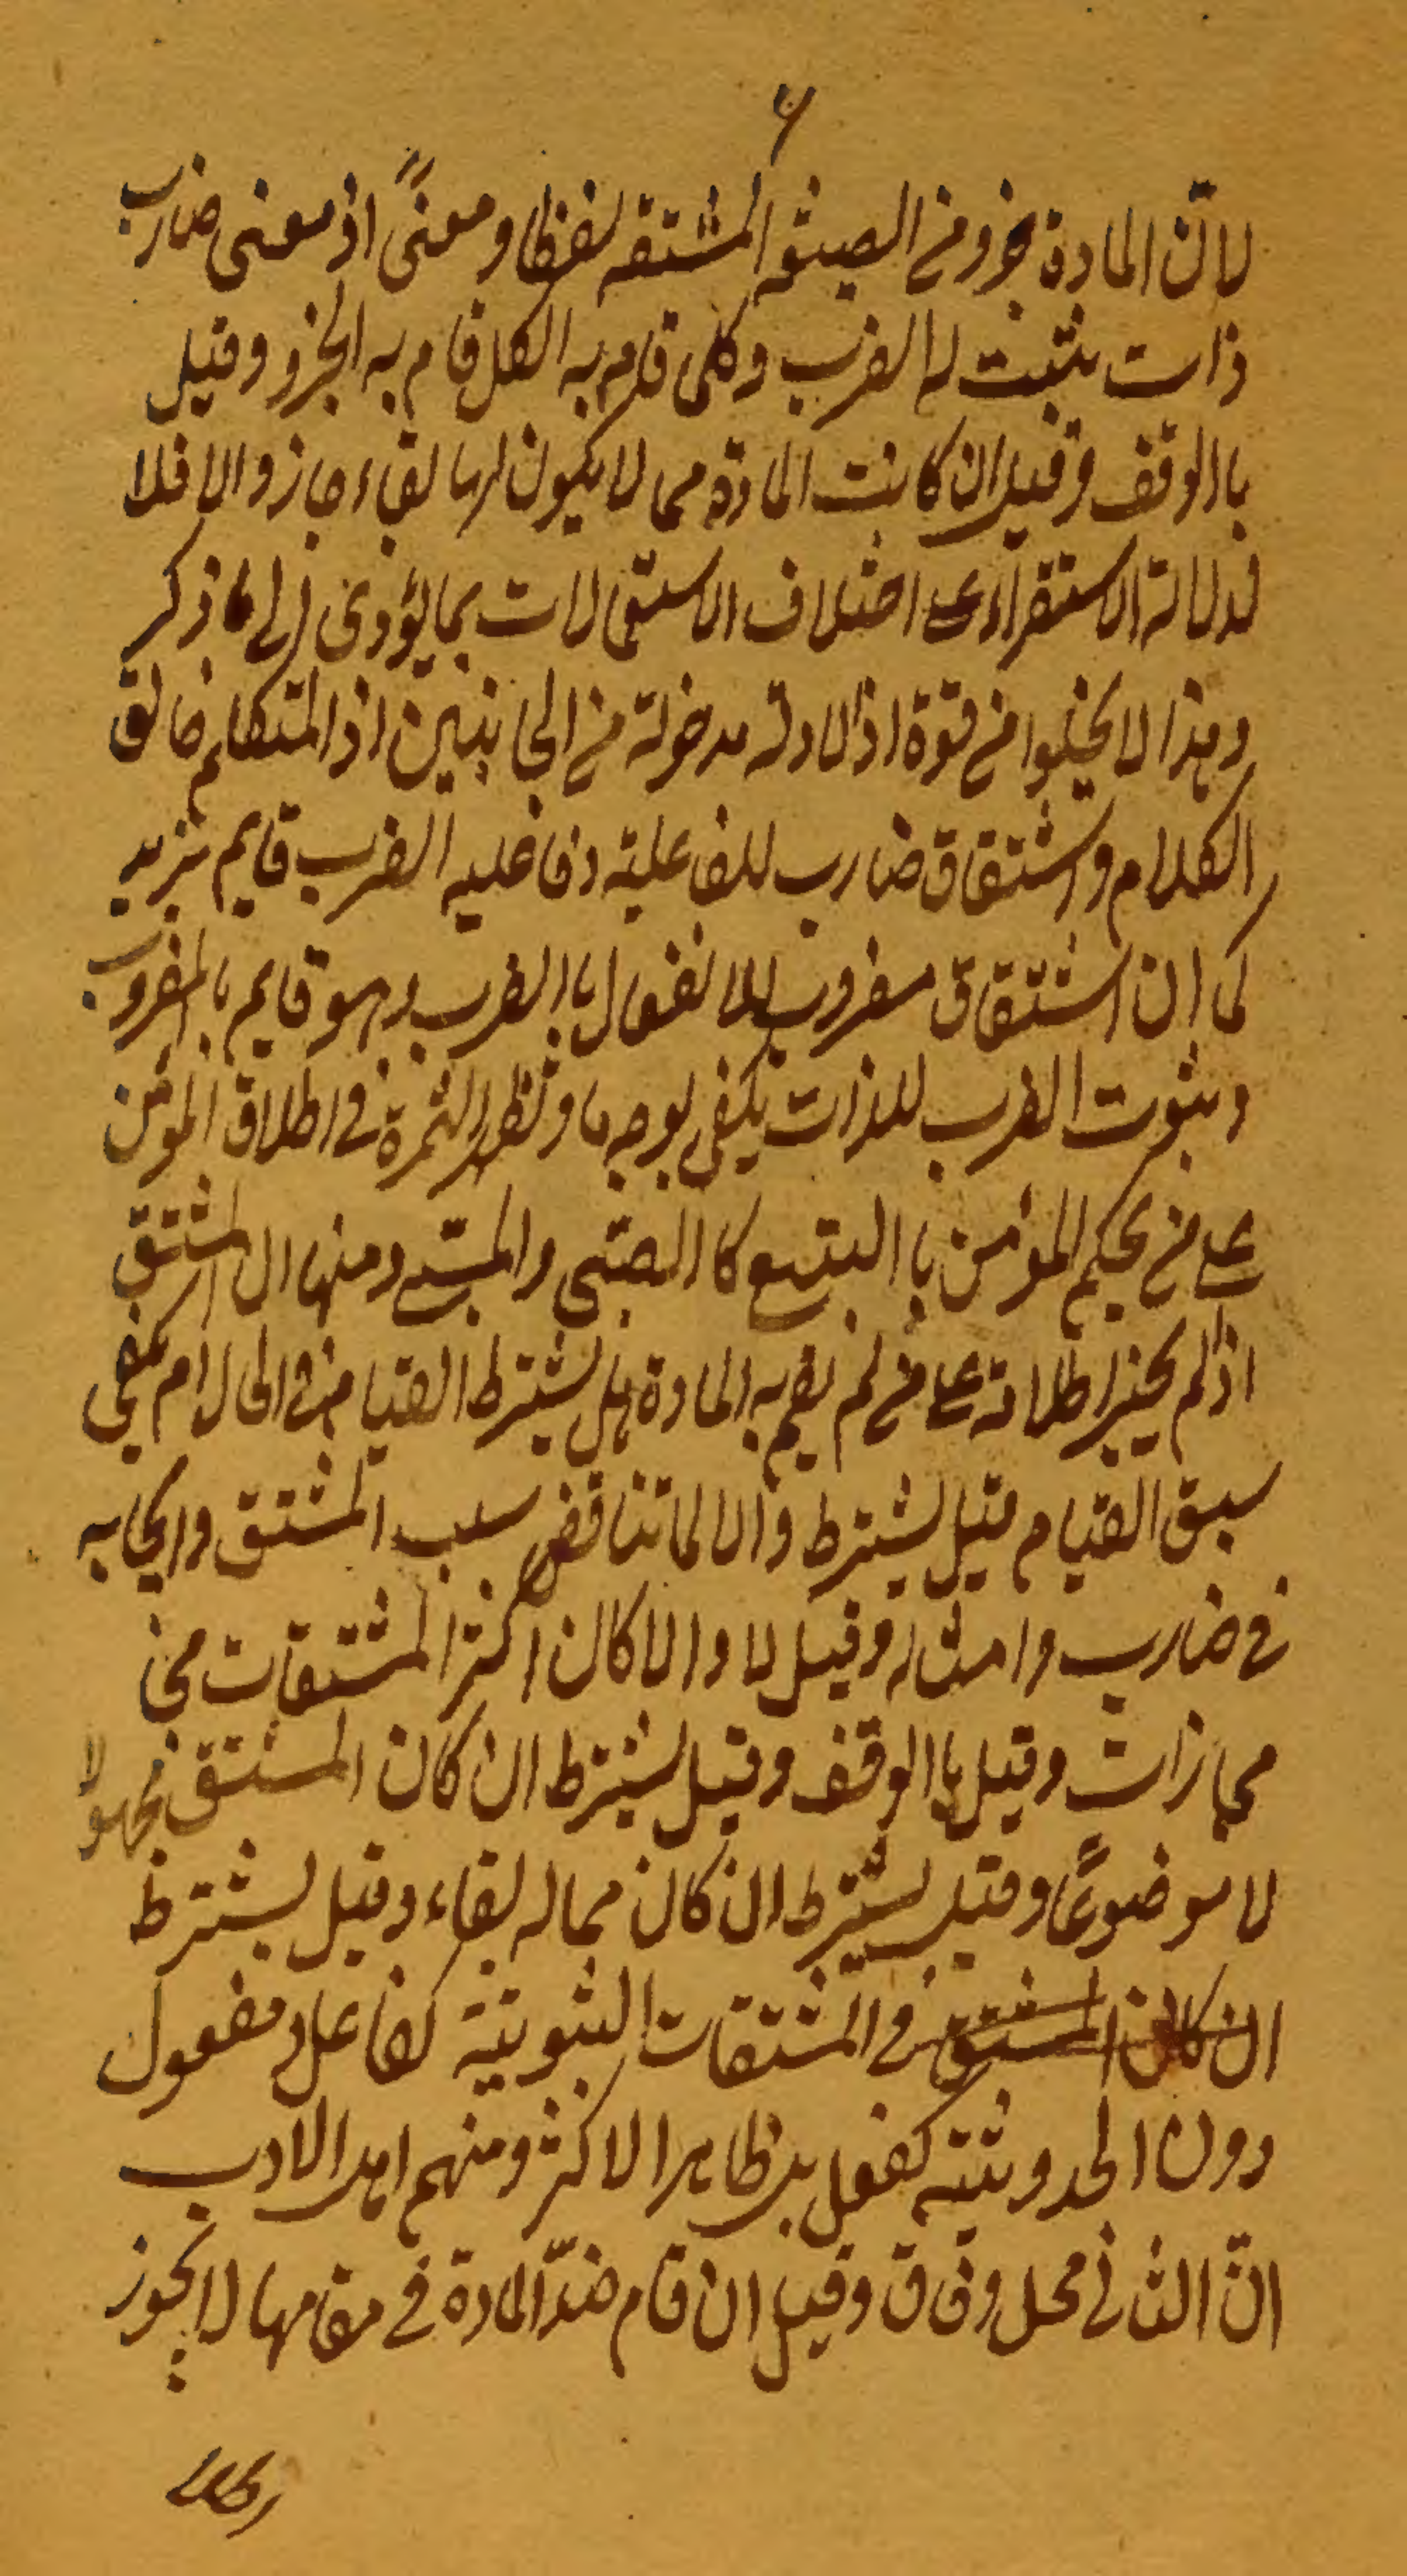 ۶
لانّ المادة جزو من الصيغه المشتقه لفظا و معنیً اذ معنی ضارب
ذات يثبت له الضرب وكلى قام به الكل قام به الجزو وقيل
باالوقف وقيل ان كانت المادة مما لا يكون لها بقاء جاز والا فلا
لدلالة الاستقراء على اختلاف الاستعمالات بما يؤدى الى ما ذكر
وهذا لا يخلوا من قوة اذ الادلة مدخولة من الجانبين اذ المتكلم خالق
الكلام واشتقاق ضارب للفاعلية وفاعليه الضرب قايم بزيد
كما ان اشتقاق مضروب للانفعال باالضرب وهو قايم بالمضروب
وثبوت الضرب للذات يكفى بوجه ما وتظهر الثمرة فى اطلاق المؤمن
على من بحكم المؤمن باالتبع كاالصبى والمسبّى ومنها ان المشتق
اذا لم يجز اطلاقه على من لم يقم به المادة هل يشترط القيام فى الحال ام يكفى
سبق القيام قيل يشترط والا لما تناقض سلب المشتق وايجابه
فى ضارب وامثاله وقيل لا والا كان اكثر المشتقات من
مجازات وقيل باالوقف وقيل يشترط ان كان المشتق محمولا
لا موضوعًا وقيل يشترط ان كان مما له بقاء وقيل يشترط
ان كان المشتق فى المشتقات الثبوتية كفاعل ومفعول
دون الحدوثية كفعل بل ظاهر الاكثر ومنهم اهل الادب
انّ الثانى محل وفاق وقيل ان قام ضدّ المادة فى مقامها لا يجوز